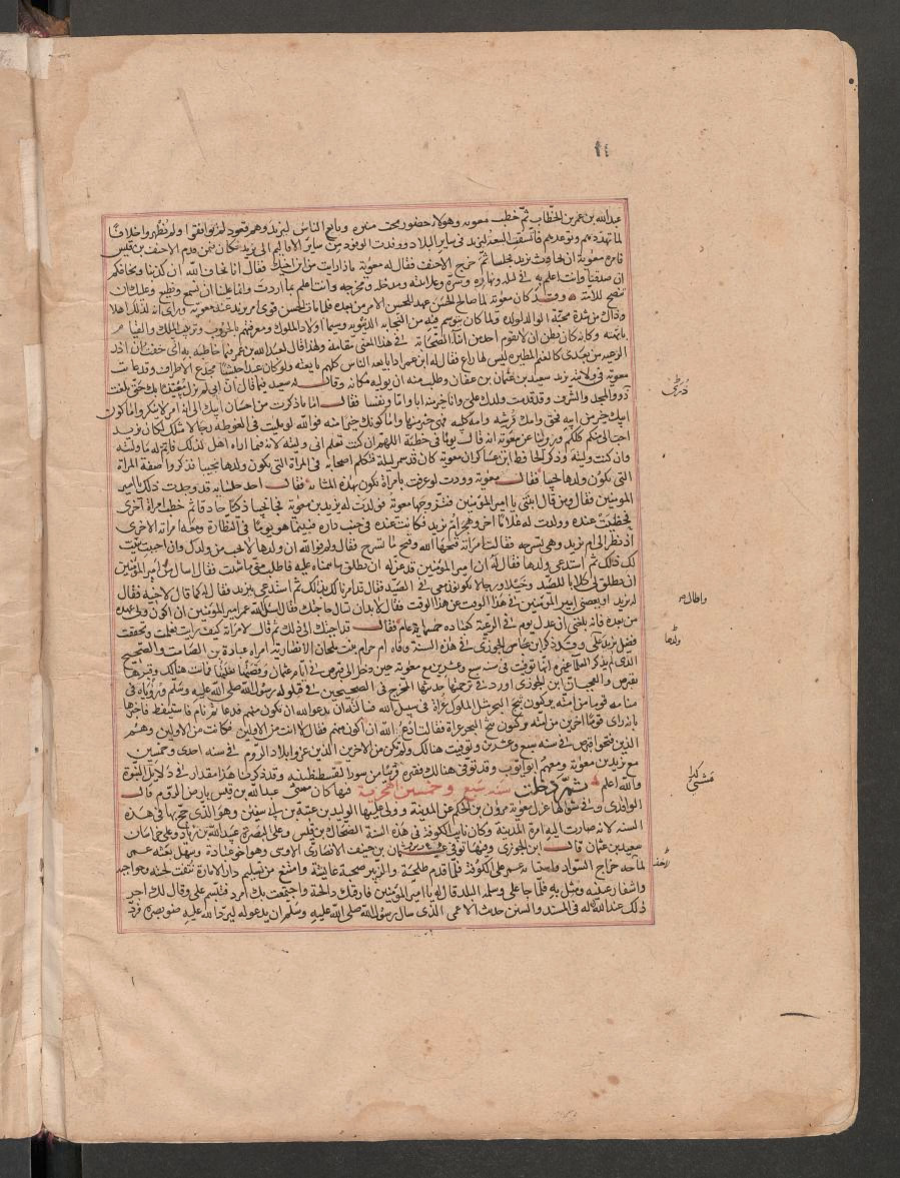 عبد الله بن عمر بن الخطاب ثم خطب معوية وهولاء حضور تحت منبره وبايع الناس ليزيد وهم قعود لم يوافقوا ولم يظهروا خلافا
لما تهددهم وتوعدهم فاتسقت البيعة ليزيد في ساير البلاد ووفدت الوفود من ساير الاقاليم الى يزيد فكان فيمن قدم الاحنف بن قيس
فامره معوية ان يحادث يزيد فجلسا ثم خرج الاحنف فقال له معوية ماذا رايت من ابن اخيك فقال انا نخاف الله ان كذبنا ونخافكم
ان صدقنا وانت اعلم به في ليله ونهاره وسره وعلانيته ومدخله ومخرجه وانت اعلم بما اردت وانما علينا ان نسمع ونطيع وعليك ان
تنصح للامة وقد كان معوية لما صالح الحسن عهد للحسن الامر من بعده فلما مات الحسن قوي امر يزيد عند معوية وراى انه لذلك اهلا
وذاك من شدة محبة الوالد لولده ولما كان يتوسم فيه من النجابة الدنيوية وسيما اولاد الملوك ومعرفتهم بالحروب وترتيب الملك والقيام
بابهته وكانه كان يظن ان لا يقوم احد من ابناء الصحابة في هذا المعنى مقامه ولهذا قال لعبد الله بن عمر فيما خاطبه به اني خفت ان اذر
الرعية من بعدي كالغنم المطيرة ليس لها راع فقال له ابن عمر اذا بايعه الناس كلهم بايعته ولو كان عبدا حبشيا مجدع الاطراف وقد عاتب
معوية في ولايته يزيد سعيد بن عثمان بن عفان وطلب منه ان يوليه مكانه وقال له سعيد فيما قال ان ابي لم يزل معتنيا بك حتى بلغت
ذروة المجد والشرف وقد قدمت ولدك علي وانا خير منه ابا واما ونفسا فقال اما ما ذكرت من احسان ابيك الي فانه امر لا ينكر واما كون
ابيك خير من ابيه فحق وامك قرشية وامه كلبية فهي خير منها واما كونك خيرا منه فوالله لو مليت لي الغوطة رجالا مثلك لكان يزيد
احب الي منكم كلكم وروينا عن معوية انه قال يوما في خطبته اللهم ان كنت تعلم اني وليته لانه فيما اراه اهل لذلك فاتمم له ما وليته
وان كنت وليته وذكر الحافظ ابن عساكر ان معوية كان قد سمر ليلة فتكلم اصحابه في المراة التي يكون ولدها نجيبا فذكروا صفة المراة
التي يكون ولدها نجيبا فقال معوية وددت لو عرفت بامراة تكون بهذه المثابة فقال احد جلسايه قد وجدت ذلك يا امير
المومنين فقال ومن قال ابنتي يا امير المومنين فتزوجها معوية فولدت له يزيد بن معوية فجا نجيبا ذكيا حاذقا ثم خطب امراة اخرى
فحظيت عنده وولدت له غلاما اخر وهجر ام يزيد فكانت عنده في جنب داره فبينما هو يوما في النظارة ومعه امراته الاخرى
اذ نظر الى ام يزيد وهي تسرحه فقالت امراته قبحها الله وقبح ما تسرح فقال ولم فوالله ان ولدها لانجب من ولدك وان احببت بينت
لك ذلك ثم استدعى ولدها فقال له ان امير المومنين قد عن له ان يطلق ما تتمناه عليه فاطلب مني ما شيت فقال اسال من امير المومنين
ان يطلق لي كلابا للصيد وخيلا ورجالا يكونون معي في الصيد فقال قد امرنا لك بذلك ثم استدعى يزيد فقال له كما قال لاخيه فقال
له يزيد او يعفني امير المومنين في هذا الوقت عن هذا الوقت فقال لا بد ان تسال حاجتك فقال اسال الله عمر امير المومنين ان اكون ولي عهده
من بعده فانه بلغني ان عدل يوم في الرعية كعبادة خمسماية عام فقال قد اجبتك الى ذلك ثم قال لامراته كيف رايت فعلمت وتحققت
فضل يزيد على ولدها وقد ذكر ابن الجوزي في هذه السنة وفاه ام حرام بنت ملحان الانصارية امراة عبادة بن الصامت والصحيح
الذي لم يذكر العلماء غيره انها توفيت في سنة سبع وعشرين مع معوية حين دخل الى قبرص في ايام عثمان وقصتها بغلتها فماتت هنالك وقبرها
بقبرص والعجب ان ابن الجوزي اورد في ترجمتها حديثها المخرج في الصحيحين في قيلولة رسول الله صلى الله عليه وسلم ورؤياه في
منامه قوما من امته يركبون ثبج البحر مثل الملوك غزاة في سبيل الله فسالته ان يدعو الله ان تكون منهم فدعا ثم نام فاستيقظ فاخبرها
بانه راى قوما اخرين من امته يركبون ثبج البحر غزاة فقالت ادع الله ان اكون منهم فقال لا انت من الاولين فكانت من الاولين وهم
الذين فتحوا قبرص في سنه سبع وعشرين وتوفيت هنالك ولم تكن من الاخرين الذين غزوا بلاد الروم في سنه احدى وخمسين
مع يزيد بن معوية ومعهم ابو ايوب وقد توفي هنالك فقبره قريبا من سور القسطنطينيه وقد ذكرنا هذا مقدارا في دلايل النبوة
والله اعلم ثم دخلت سنه سبع وخمسين الهجرية فيها كان مشتى عبد الله بن قيس بارض الروم قال
الواقدي وفي شوالها عزل معوية مروان بن الحكم عن المدينة وولى عليها الوليد بن عتبة بن ابي سفين وهو الذي حج بها في هذه
السنه لانه صارت اليه امرة المدينة وكان نايب الكوفة في هذه السنة الضحاك بن قيس وعلى البصره عبيد الله بن زياد وعلى خراسان
سعيد بن عثمان قال ابن الجوزي وفيها توفي عثمان بن حنيف الانصاري الاوسي وهو اخو عبادة وسهل بعثه عمر
لمساحة خراج السواد واستنابه عمر على الكوفة فلما قدم طلحة والزبير صحبة عايشة وامتنع من تسليم دار الامارة نتفت لحيته وحواجبه
واشفار عينيه ومثل به فلما جا علي وسلمه البلد قال له يا امير المومنين فارقتك ذا لحية واجتمعت بك امرد فتبسم علي وقال لك اجر
ذلك عند الله وله في المسند والسنن حديث الاعمى الذي سال رسول الله صلى الله عليه وسلم ان يدعو له ليرد الله عليه ضوء بصره فرد
ولدها
مشتى